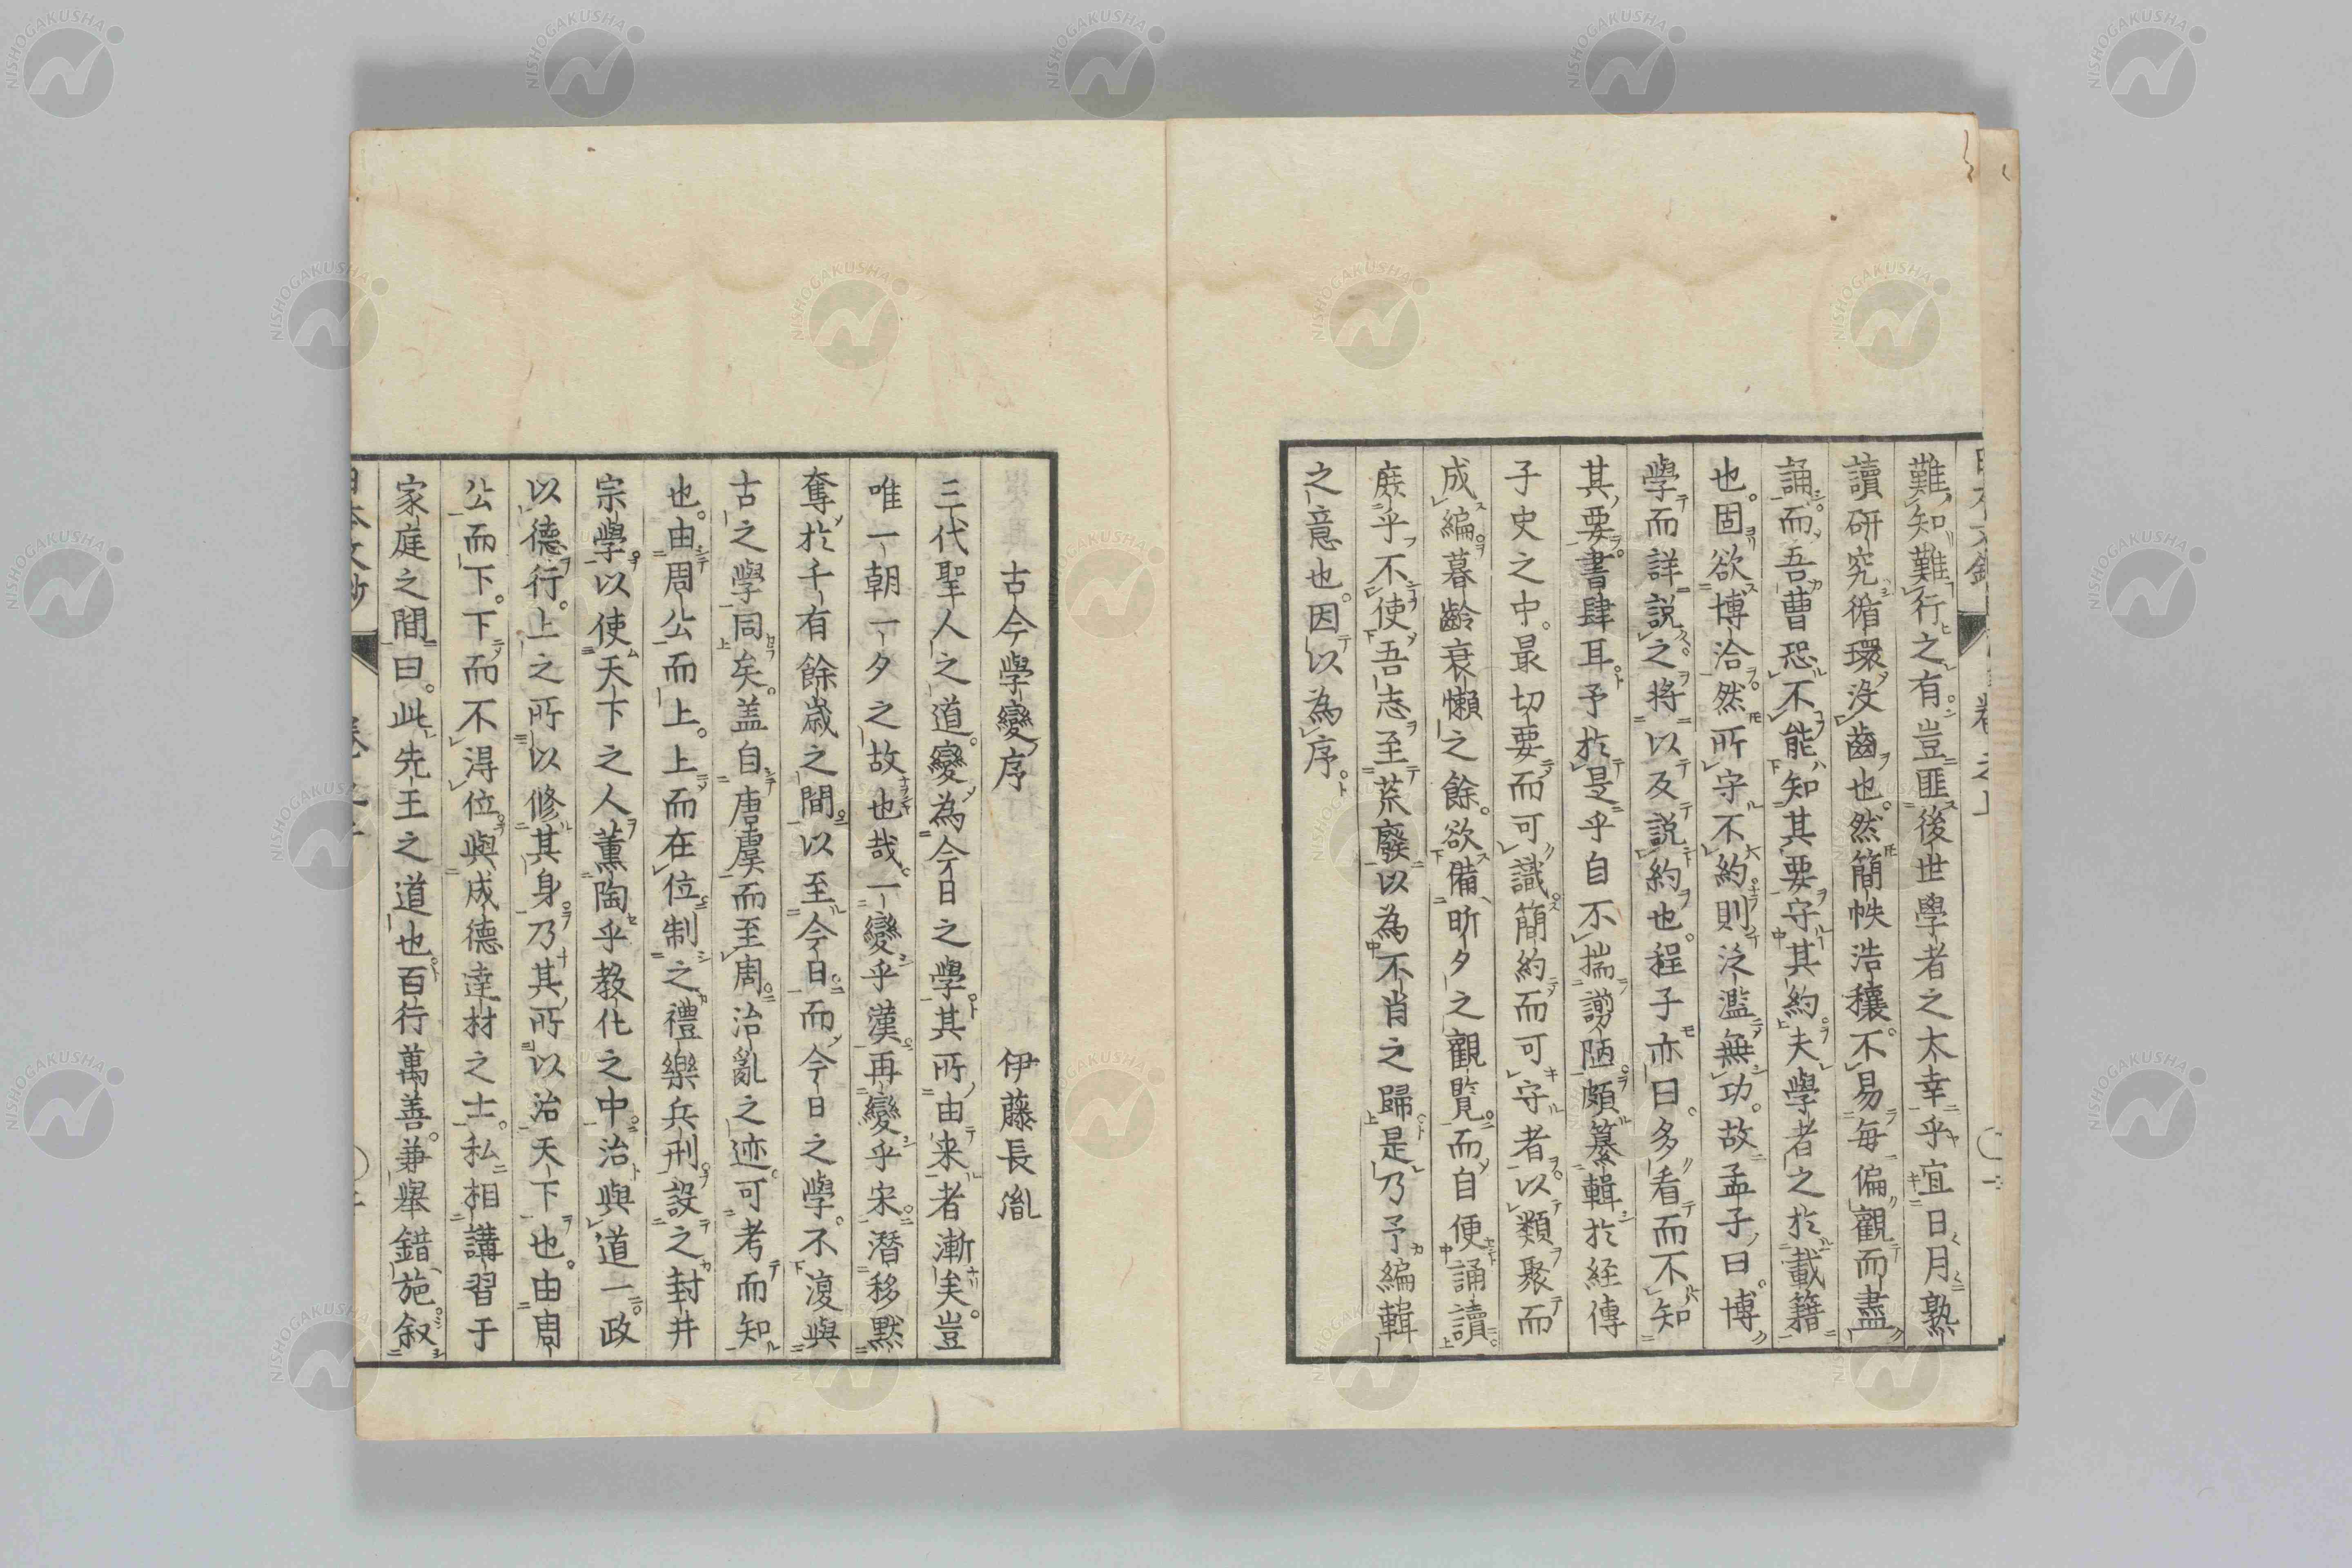 難知難行之有豈匪後世學者之大幸乎宜日月熟
讀研究循環沒齒也然簡帙浩穰不易每偏觀而盡
誦而吾曹恐不能知其要守其約夫學者之於載籍
也固欲博洽然所守不約則泛濫無功故孟子曰博
學而詳說之將以反說約也程子亦曰多看而不知
其要書肆耳予於是乎自不揣謭陋頗纂輯於經傳
子史之中最切要而可識簡約而可守者以類聚而
成編暮齡衰懶之餘欲備昕夕之觀覽而自便誦讀
庶乎不使吾志至荒廢以為不肖之歸是乃予編輯
之意也因以為序
古今學變序
伊藤長胤
三代聖人之道變為今日之學其所由来者漸矣豈
唯一朝一夕之故也哉一變乎漢再變乎宋潜移默
奪於千有餘歲之間以至今日而今日之學不復與
古之學同矣盖自唐虞而至周治亂之迹可考而知
也由周公而上上而在位制之禮樂兵刑設之封井
宗學以使天下之人薰陶乎教化之中治與道一政
以德行上之所以修其身乃其所以治天下也由周
公而下下而不得位與成德達材之士私相講習于
家庭之間曰此先王之道也百行萬善兼舉錯施叙